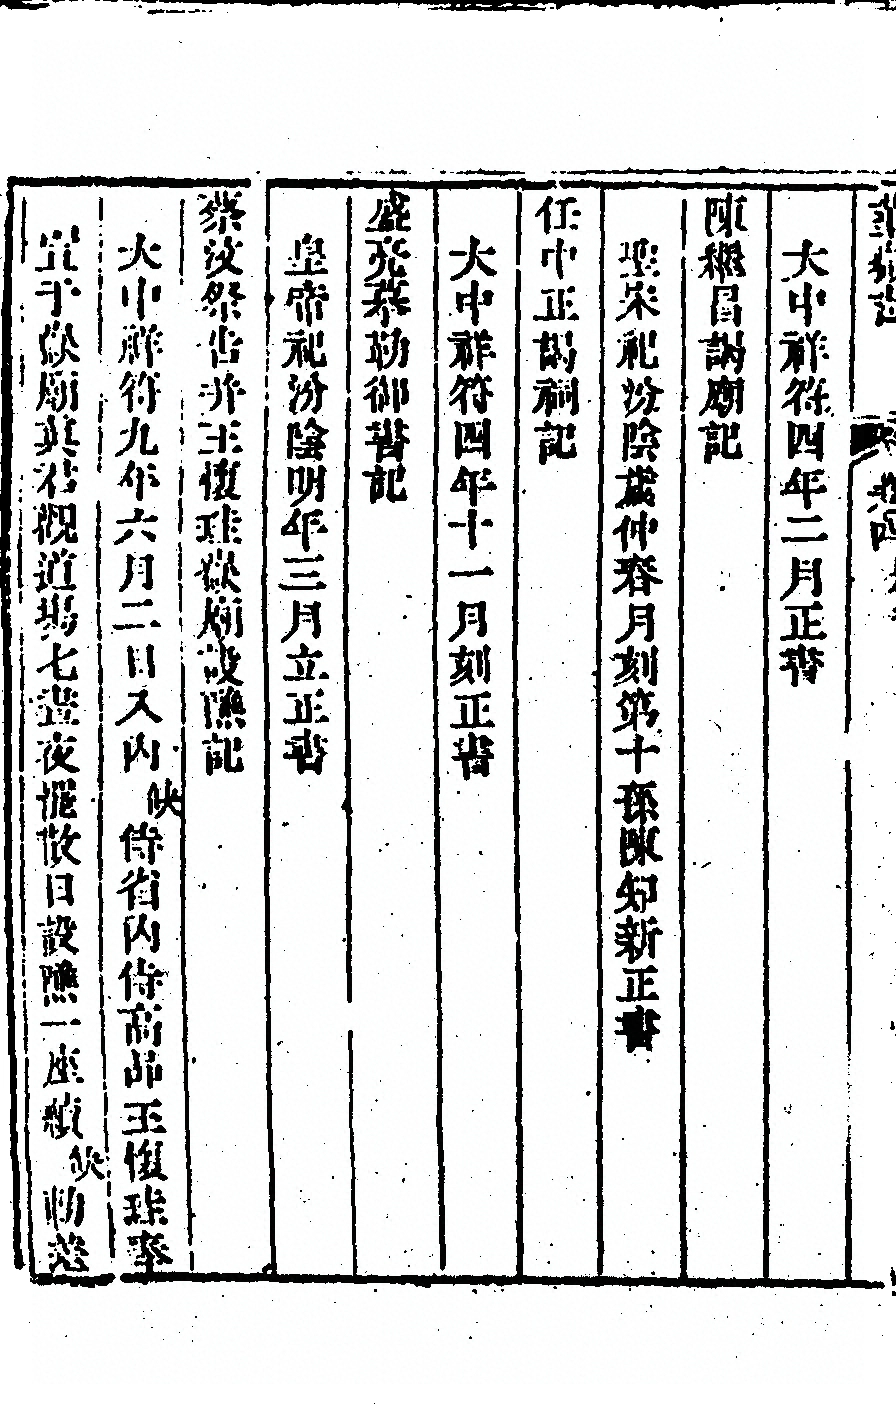 大中祥符四年二月正書
陳䌓昌謁廟記
聖宋祀汾陰歲仲春月刻第十孫陳知新正書
任中正謁祠記
大中祥符四年十一月刻正書
盛亮摹勒御書記
皇帝祀汾陰明年三月立正書
蔡汶祭告并王懷珪嶽廟設醮記
大中祥符九年六月二日入内缺侍省内侍高品王懷珪奉
宣于嶽廟真君觀道場七晝夜罷散日設醮一座續缺勅差